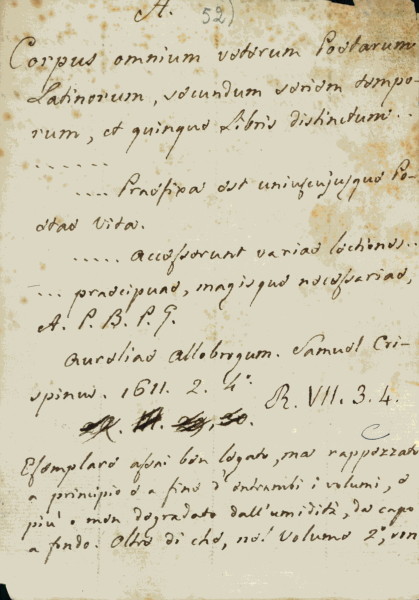 A. 52)
Corpus omnium veterum Poetarum
Latinorum, secundum seriem tempo-
rum, et quinque Libris distinctum..
......
.... Praefixa est uniuscujusque Po-
etae Vita.
..... Accesserunt variae lectiones..
... praecipuae, magisque necessariae,
A. P. B. P. G.
Aureliae Allobrogum. Samuel Cri-
spinus. 1611. 2. 4°.
R. VII. 3. 4.
Esemplare assai ben legato, ma rappezzato
a principio e a fine d'entrambi i volumi, e
più o men degradato dall'umidità, da capo
a fondo. Oltre di che, nel Volume 2°, ven